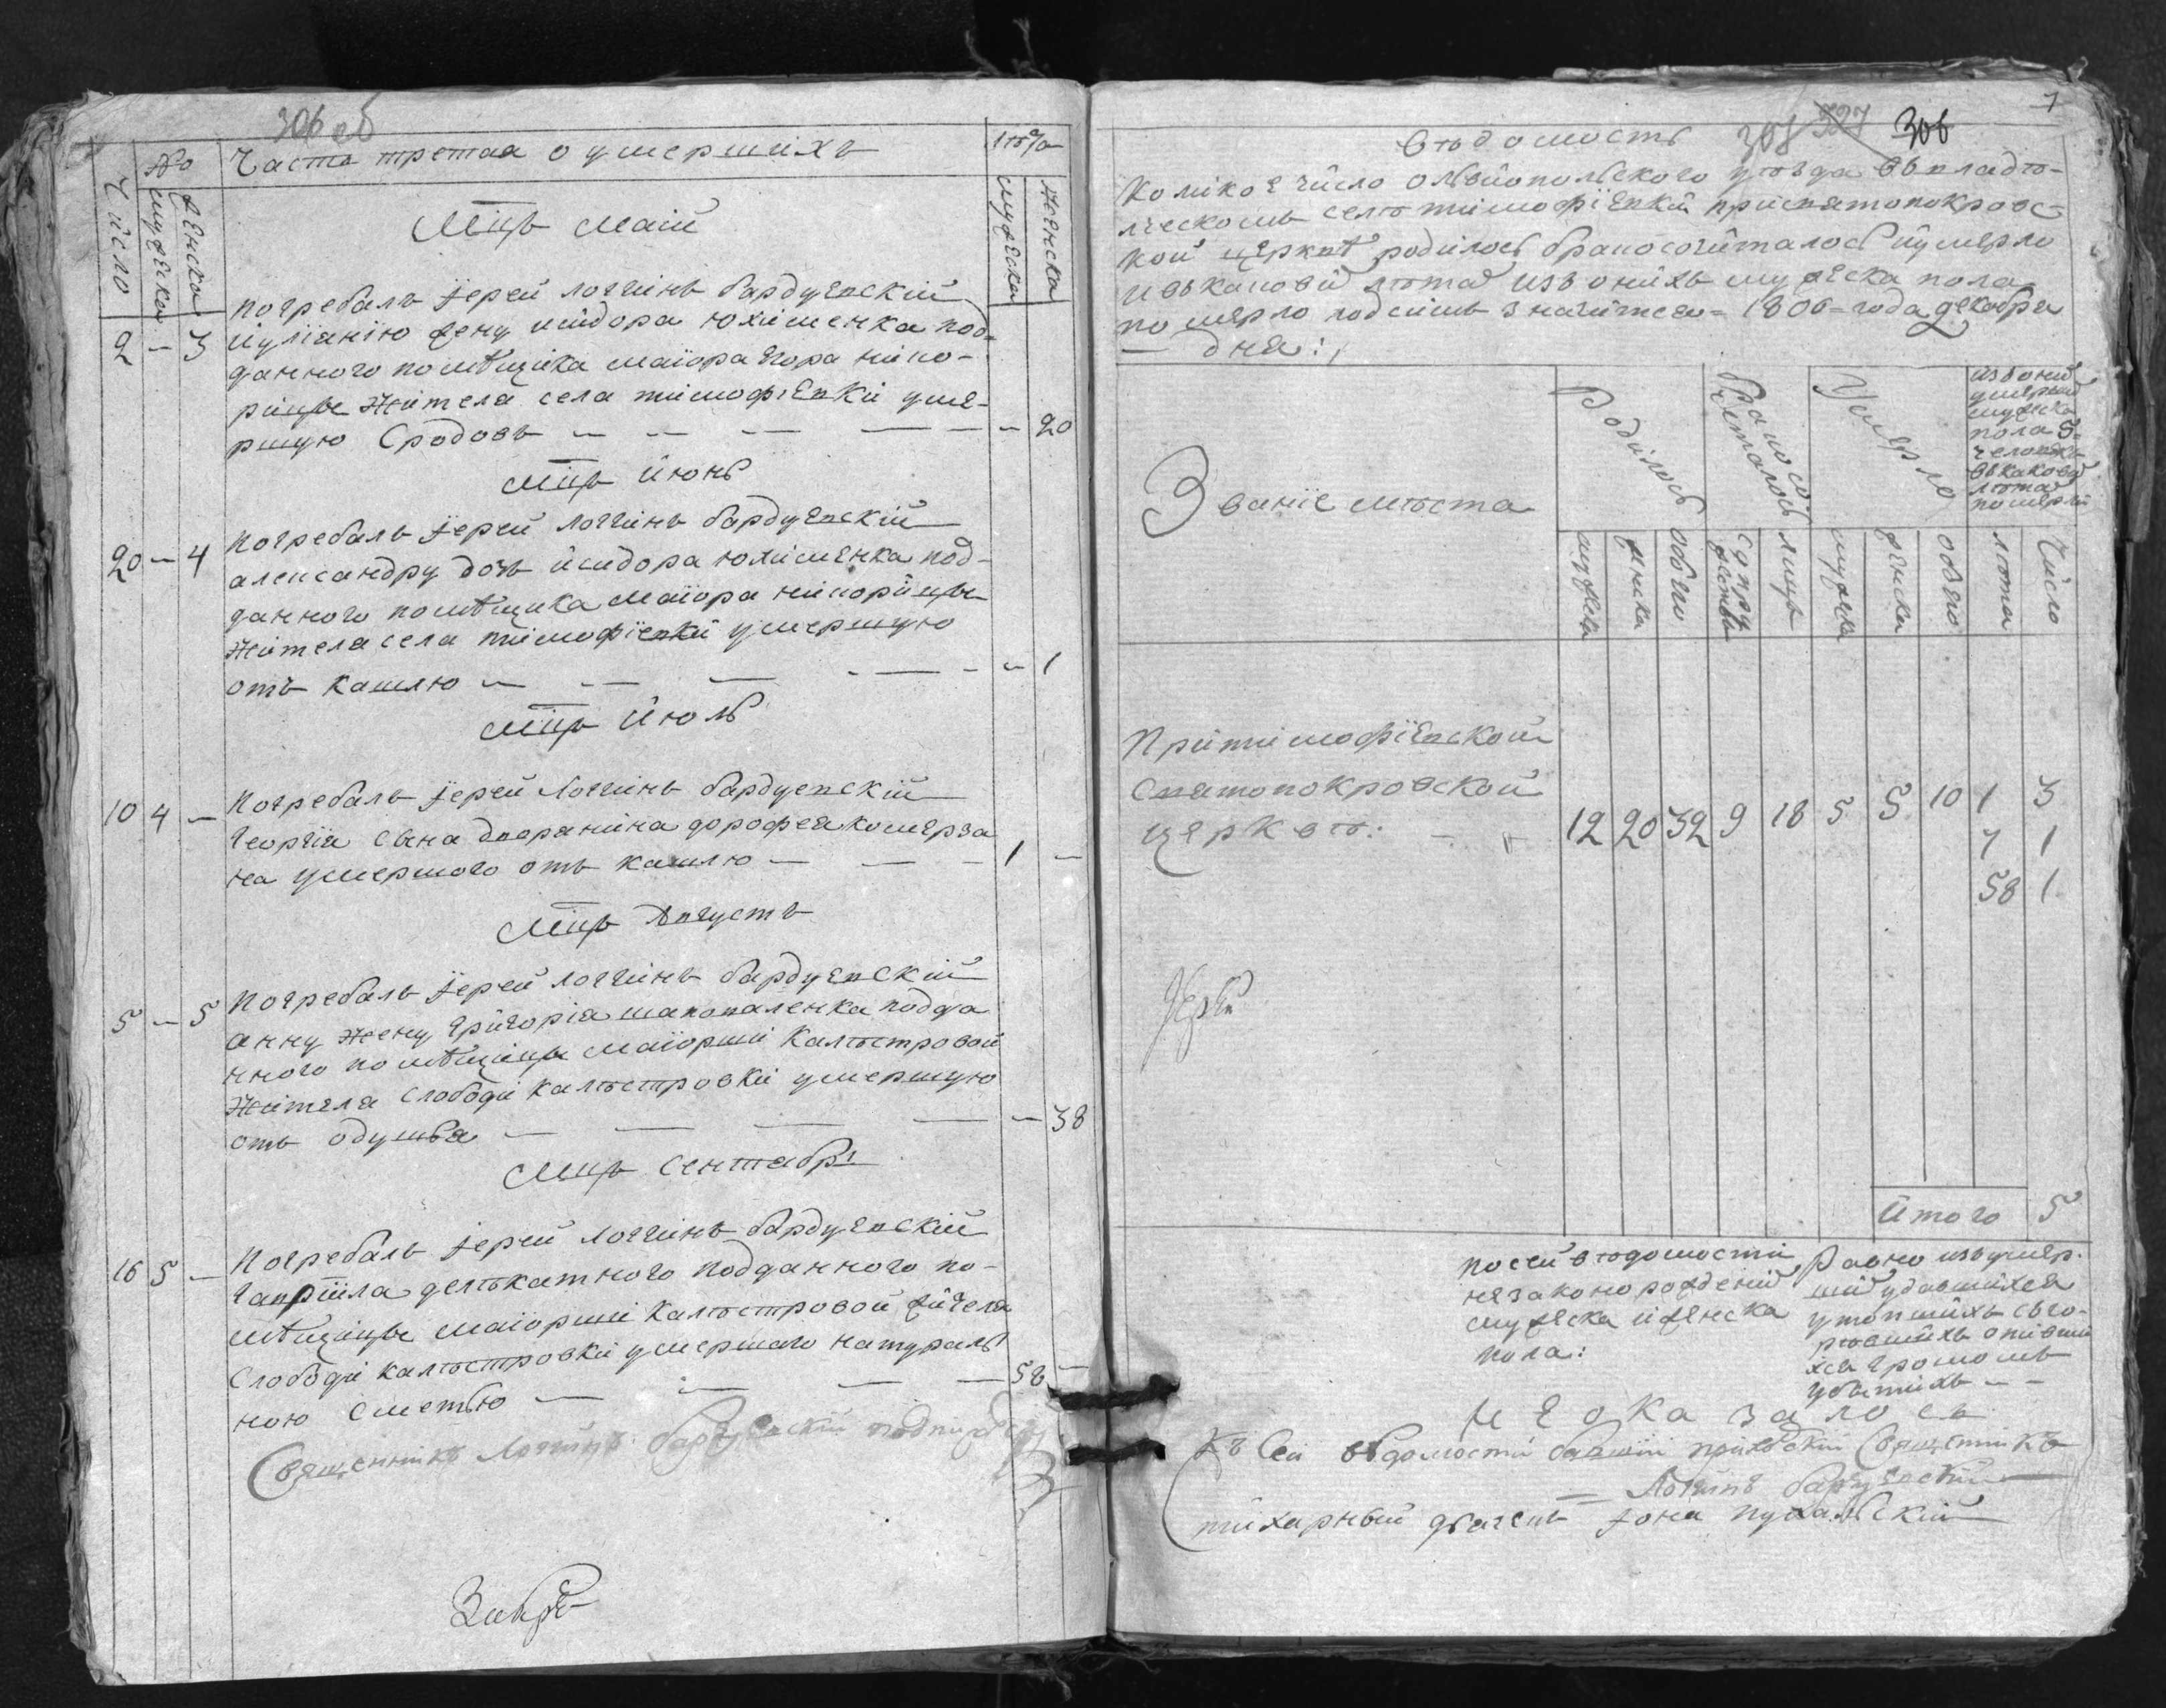 306 об
Число
№
мужеска
женска
Часть третая о умершихъ
лѣта
мужеска
женска
Мцъ маий
2 – 3
погребалъ іерей логгинъ бардуевскій
иуліанію жену исидора юхименка под-
данного помѣщика маіора егора
жителя села тимофіевки уме-
ршую Сродовъ – – – – – 20
Мцъ июнь
20 – 4
погребалъ іерей логгинъ бардуевскій
александру дочь исидора юхименка под-
данного помѣщика маіора
жителя села тимофіевки умершую
отъ кашлю – – – – – 1
Мцъ июль
10 4 –
Погребалъ іерей логгинъ бардуевскій
Георгіа сына дворянина дорофея комерза
на умершого отъ кашлю – – – 1 –
Мцъ Августъ
5 – 5
Погребалъ іерей логгинъ бардуевскій
анну жену григоріа шаповаленкаподда
нного помѣщици маіорши Калѣстровой
жителя слободи калѣстровки умершую
отъ одушья – – – – – 38
Мцъ Сентабрі
16 5 –
Погребалъ іерей логгинъ бардуевскій
гавріила делѣкатного подданного по-
мѣщици маіорши калѣстровой жителя
Слободи калѣстровки умершаго натураль
ною сметью – – – – 58 –
Священникъ Логгинъ бардуевскій
1
308 327 306
вѣдомость
колікое число олвиопольского уѣзда въ владѣ-
лческомъ селѣ тимофіевки присвятопокровс-
кой церкве родилось бракосочиталось и умерло
и въ каковій лѣта изъ онихъ мужеска пола
померло подсимъ значитса = 1806 = года декабра
– дна:
Званіе мѣста
Родилось
бракосо
четалось
Умерло
изъ оний
умерший
мужеска
пола 5
человѣка
въ каковій
лѣта
померли
мужеска
женска
обоего
супру
жествъ
лицъ
мужеска
женска
обоего
лѣта
Число
Притимофіевской
Святопокровской
церквѣ: – – 12 20 32 9 18 5 5 10 1 3
7 1
58 1
Итого 5
Іерей
посей вѣдомости
незаконорожденій
мужеска и женска
пола:
Равно изъ умер-
ший удавшихся
утопшихъ сьго-
рѣвшихъ опивши
хса громомъ
убытихъ – –
не оказалось
Къ сей вѣдомости бывшій прихѣдскій Священникъ
Логгинъ бардуевскій
тихарный дьячокъ іона пухальскій